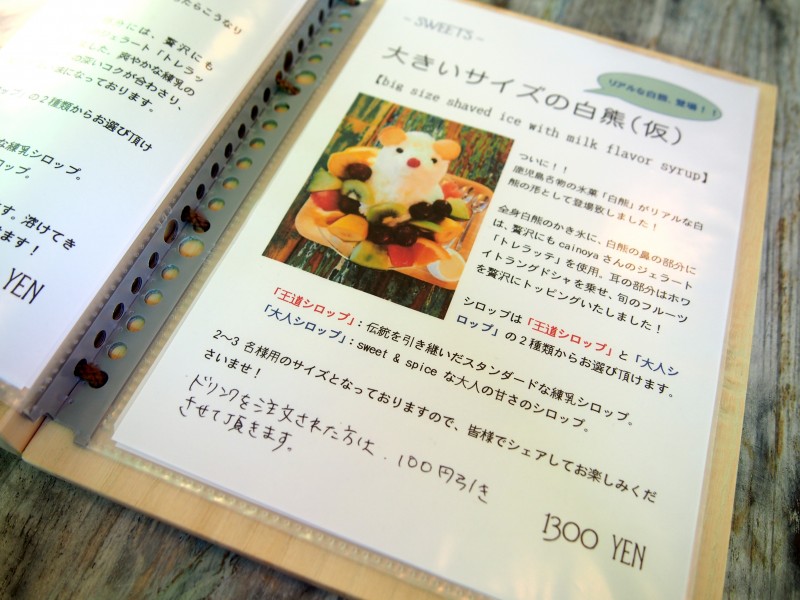 たらこうなり
には、贅沢にも
ジェラート「トレラッ
した。爽やかな練乳の
深いコクが合わさり、
になっております。
ップ」の2種類からお選び頂け
な練乳シロップ。
シロップ。
ます。溶けてき
きます！
YEN
- SWEETS -
大きいサイズの白熊(仮)
リアルな白熊、登場！！
【big size shaved ice with milk flavor syrup】
ついに！！
鹿児島名物の氷菓「白熊」がリアルな白
熊の形として登場致しました！
全身白熊のかき氷に、白熊の鼻の部分に
は、贅沢にも cainoya さんのジェラート
「トレラッテ」を使用。耳の部分はホワ
イトラングドシャを乗せ、旬のフルーツ
を贅沢にトッピングいたしました！
シロップは「王道シロップ」と「大人シ
ロップ」の2種類からお選び頂けます。
「王道シロップ」：伝統を引き継いだスタンダードな練乳シロップ。
「大人シロップ」：sweet & spice な大人の甘さのシロップ。
2〜3 名様用のサイズとなっておりますので、皆様でシェアしてお楽しみくだ
さいませ！
ドリンクを注文された方は、100円引き
させて頂きます。
1300 YEN